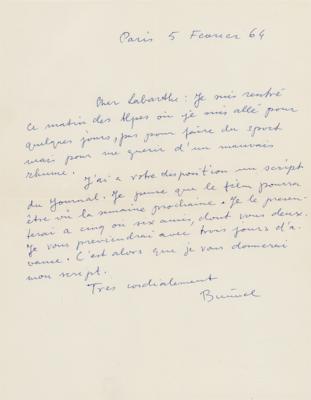 Paris 5 Fevrier 64
Cher Labarthe: Je suis rentré
ce matin des Alpes où je suis allé pour
quelques jours, pas pour faire du sport
mais pour me guerir d'un mauvais
rhume.
J'ai a votre disposition un script
du Journal. Je pense que le film pourra
être vu la semaine prochaine. Je le presen-
terai a cinq ou six amis, dont vous deux.
Je vous previendrai avec trois jours d'a-
vance. C'est alors que je vous donnerai
mon script.
Tres cordialement
Buñuel